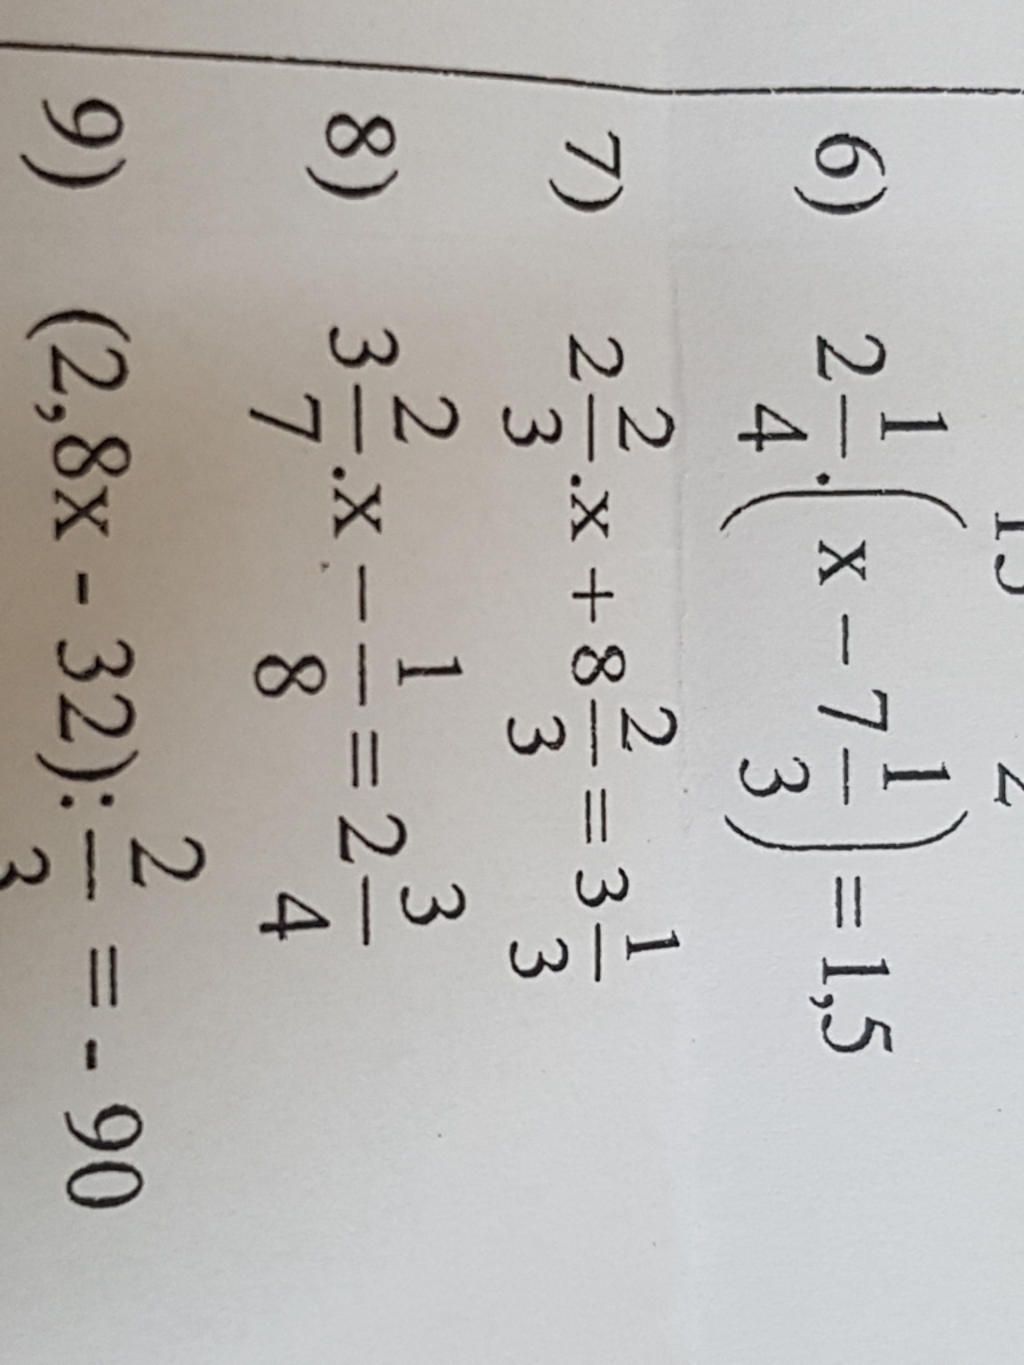 6) 2 1/4 . ( x – 7 1/3 ) = 1,5
7) 2 2/3 .x + 8 2/3 = 3 1/3
8) 3 2/7 .x – 1/8 = 2 3/4
9) (2,8x - 32): 2/3 = - 90